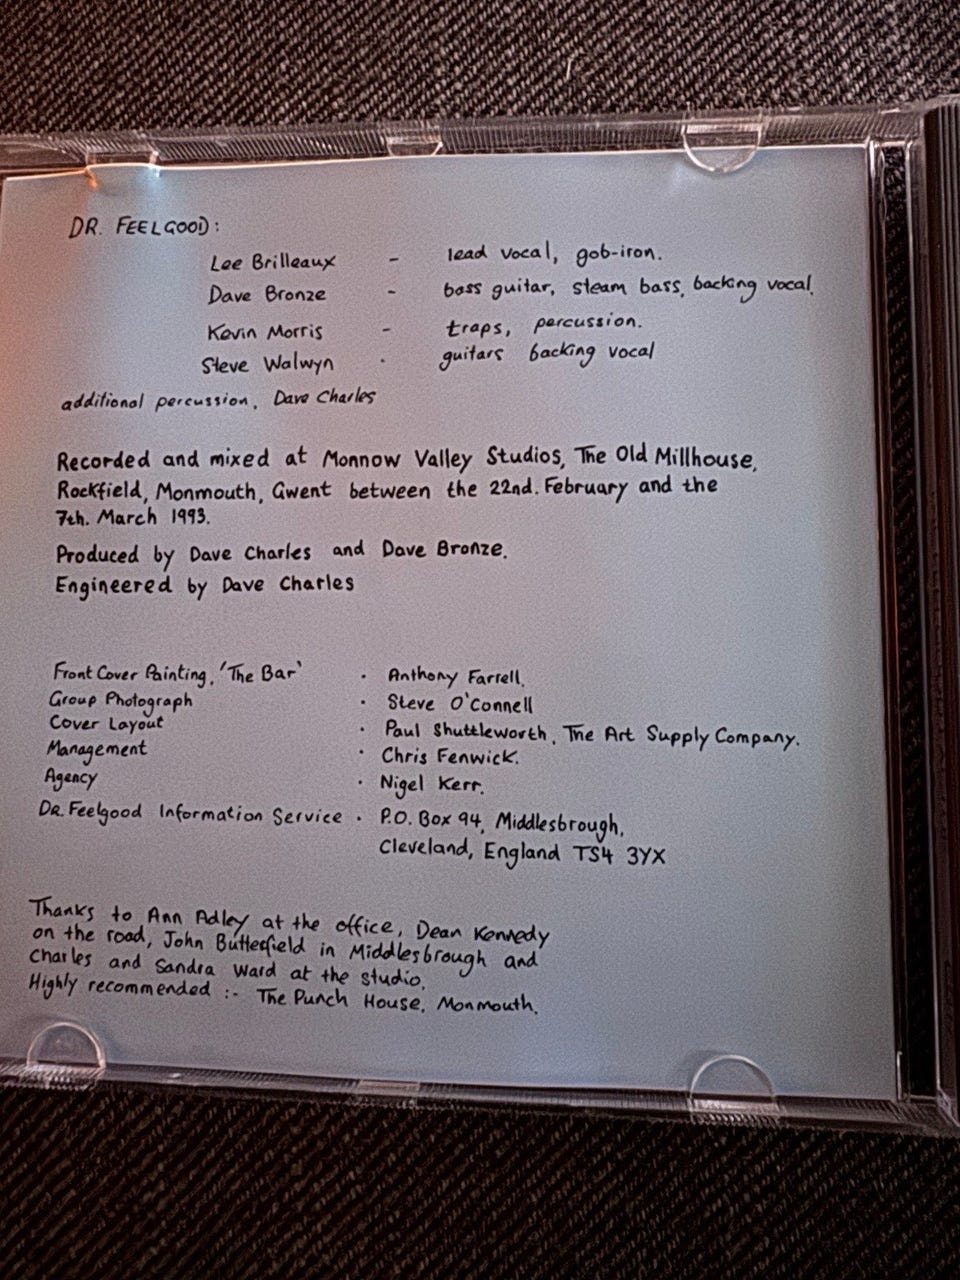 DR. FEELGOOD:
Lee Brilleaux - lead vocal, gob-iron.
Dave Bronze - bass guitar, steam bass, backing vocal.
Kevin Morris - traps, percussion.
Steve Walwyn . guitars backing vocal
additional percussion, Dave Charles
Recorded and mixed at Monnow Valley Studios, The Old Millhouse,
Rockfield, Monmouth, Gwent between the 22nd. February and the
7th. March 1993.
Produced by Dave Charles and Dave Bronze.
Engineered by Dave Charles
Front Cover Painting, 'The Bar' . Anthony Farrell.
Group Photograph . Steve O'Connell
Cover Layout . Paul Shuttleworth, The Art Supply Company.
Management . Chris Fenwick.
Agency . Nigel Kerr.
DR. Feelgood Information Service . P.O. Box 94, Middlesbrough,
Cleveland, England TS4 3YX
Thanks to Ann Adley at the office, Dean Kennedy
on the road, John Butterfield in Middlesbrough and
Charles and Sandra Ward at the studio.
Highly recommended :- The Punch House, Monmouth.